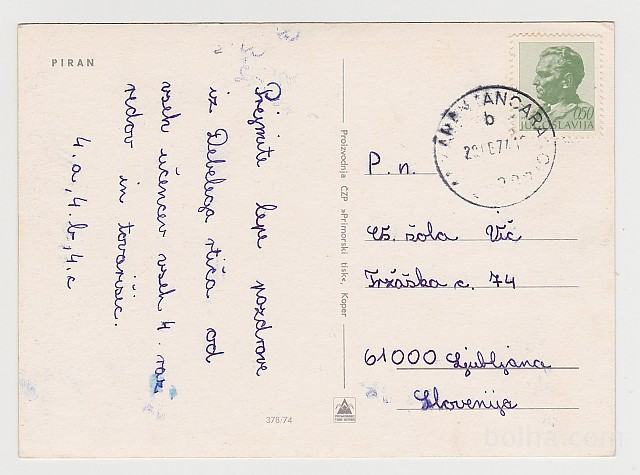 PIRAN
Prejmite lepe pozdrave
iz Debelega rtiča od
vseh učencev vseh 4. raz
redov in tovarišic.
4. a, 4. b, 4. c
Proizvodnja ČZP »Primorski tisk«, Koper
378/74
0,50
JUGOSLAVIJA
ANCARAN ANCARANO
b
P. n.
OŠ. šola Vič
Tržaška c. 74
61000 Ljubljana
Slovenija
bolha.com